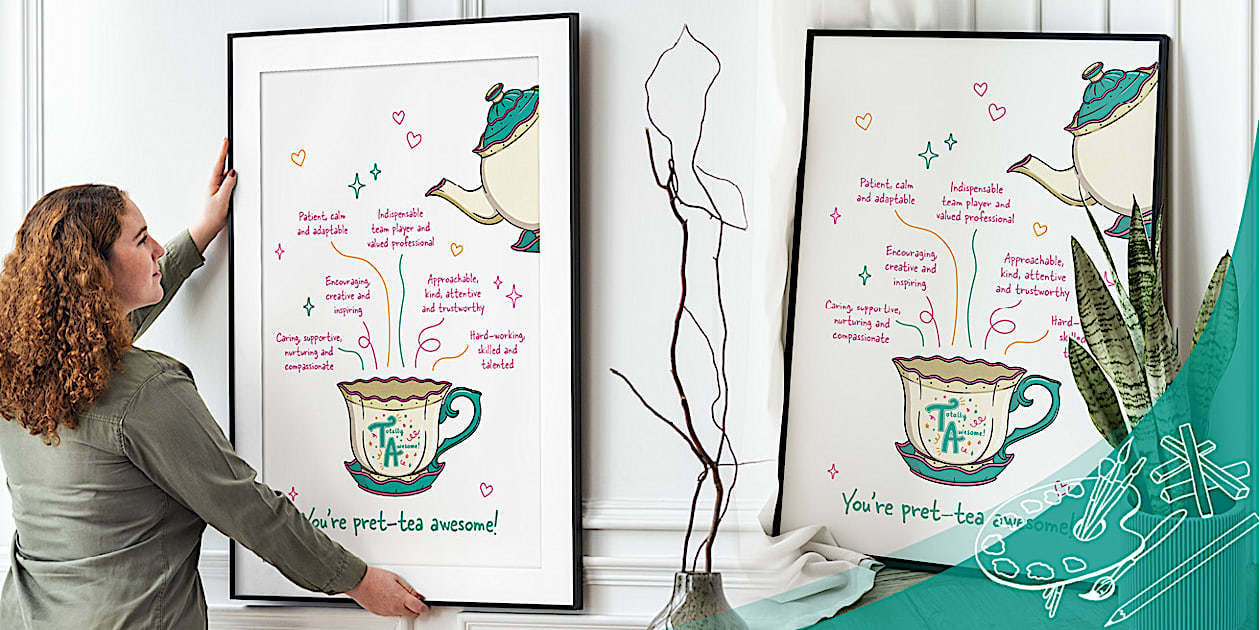 Patient, calm
and adaptable
Indispensable
team player and
valued professional
Encouraging,
creative and
inspiring
Approachable,
kind, attentive
and trustworthy
Caring, supportive,
nurturing and
compassionate
Hard-working,
skilled and
talented
Totally
Awesome!
You're pret-tea awesome!
Patient, calm
and adaptable
Indispensable
team player and
valued professional
Encouraging,
creative and
inspiring
Approachable,
kind, attentive
and trustworthy
Caring, supportive,
nurturing and
compassionate
Hard-
Totally
Awesome!
You're pret-tea awesome!